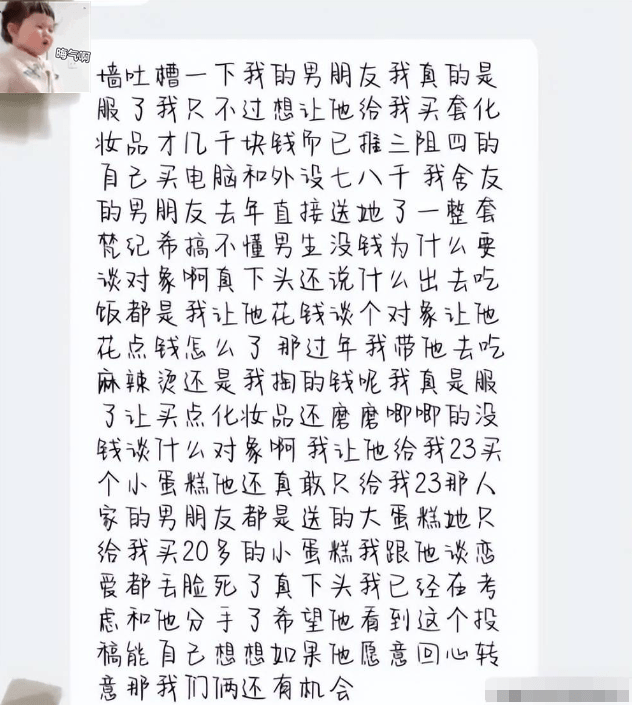 晦气啊
墙吐槽一下我的男朋友我真的是
服了我只不过想让他给我买套化
妆品才几千块钱而已推三阻四的
自己买电脑和外设七八千 我舍友
的男朋友去年直接送她了一整套
梵纪希搞不懂男生没钱为什么要
谈对象啊真下头还说什么出去吃
饭都是我让他花钱谈个对象让他
花点钱怎么了 那过年我带他去吃
麻辣烫还是我掏的钱呢我真是服
了让买点化妆品还磨磨唧唧的没
钱谈什么对象啊 我让他给我23买
个小蛋糕他还真敢只给我23那人
家的男朋友都是送的大蛋糕她只
给我买20多的小蛋糕我跟他谈恋
爱都丢脸死了真下头我已经在考
虑和他分手了希望他看到这个投
稿能自己想想如果他愿意回心转
意那我们俩还有机会